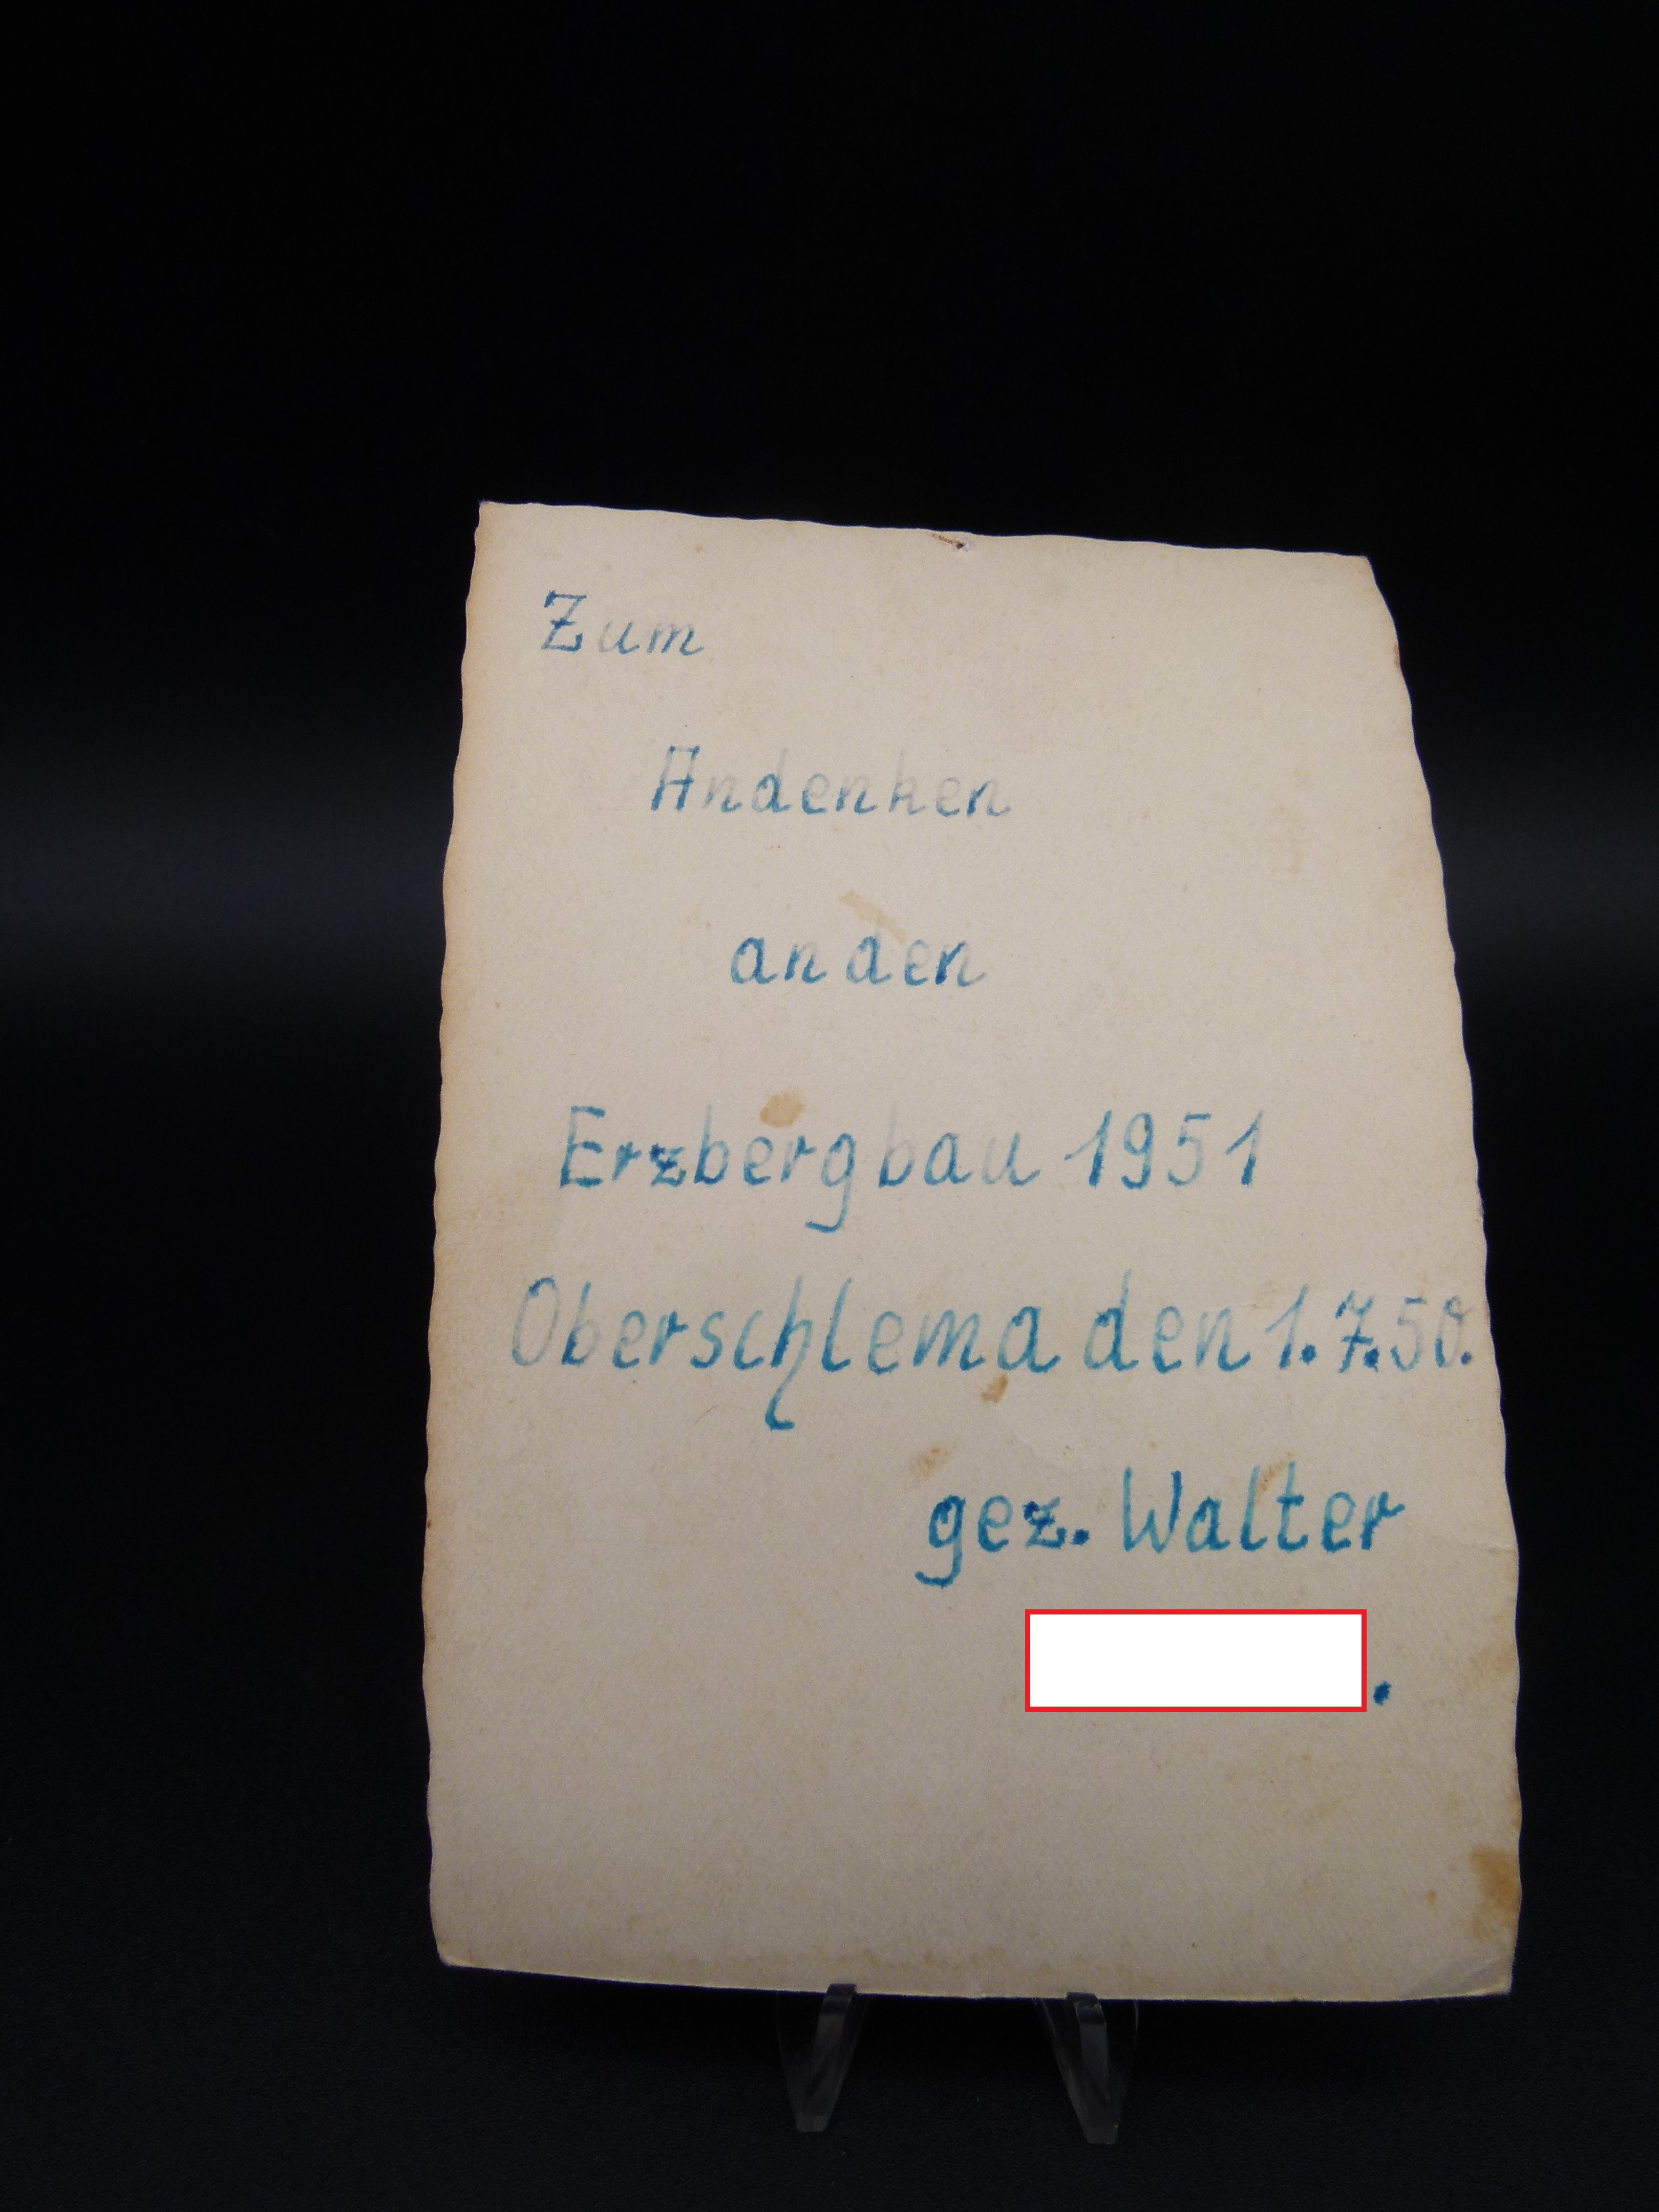 Zum
Andenken
an den
Erzbergbau 1951
Oberschlema den 1.7.50.
gez. Walter